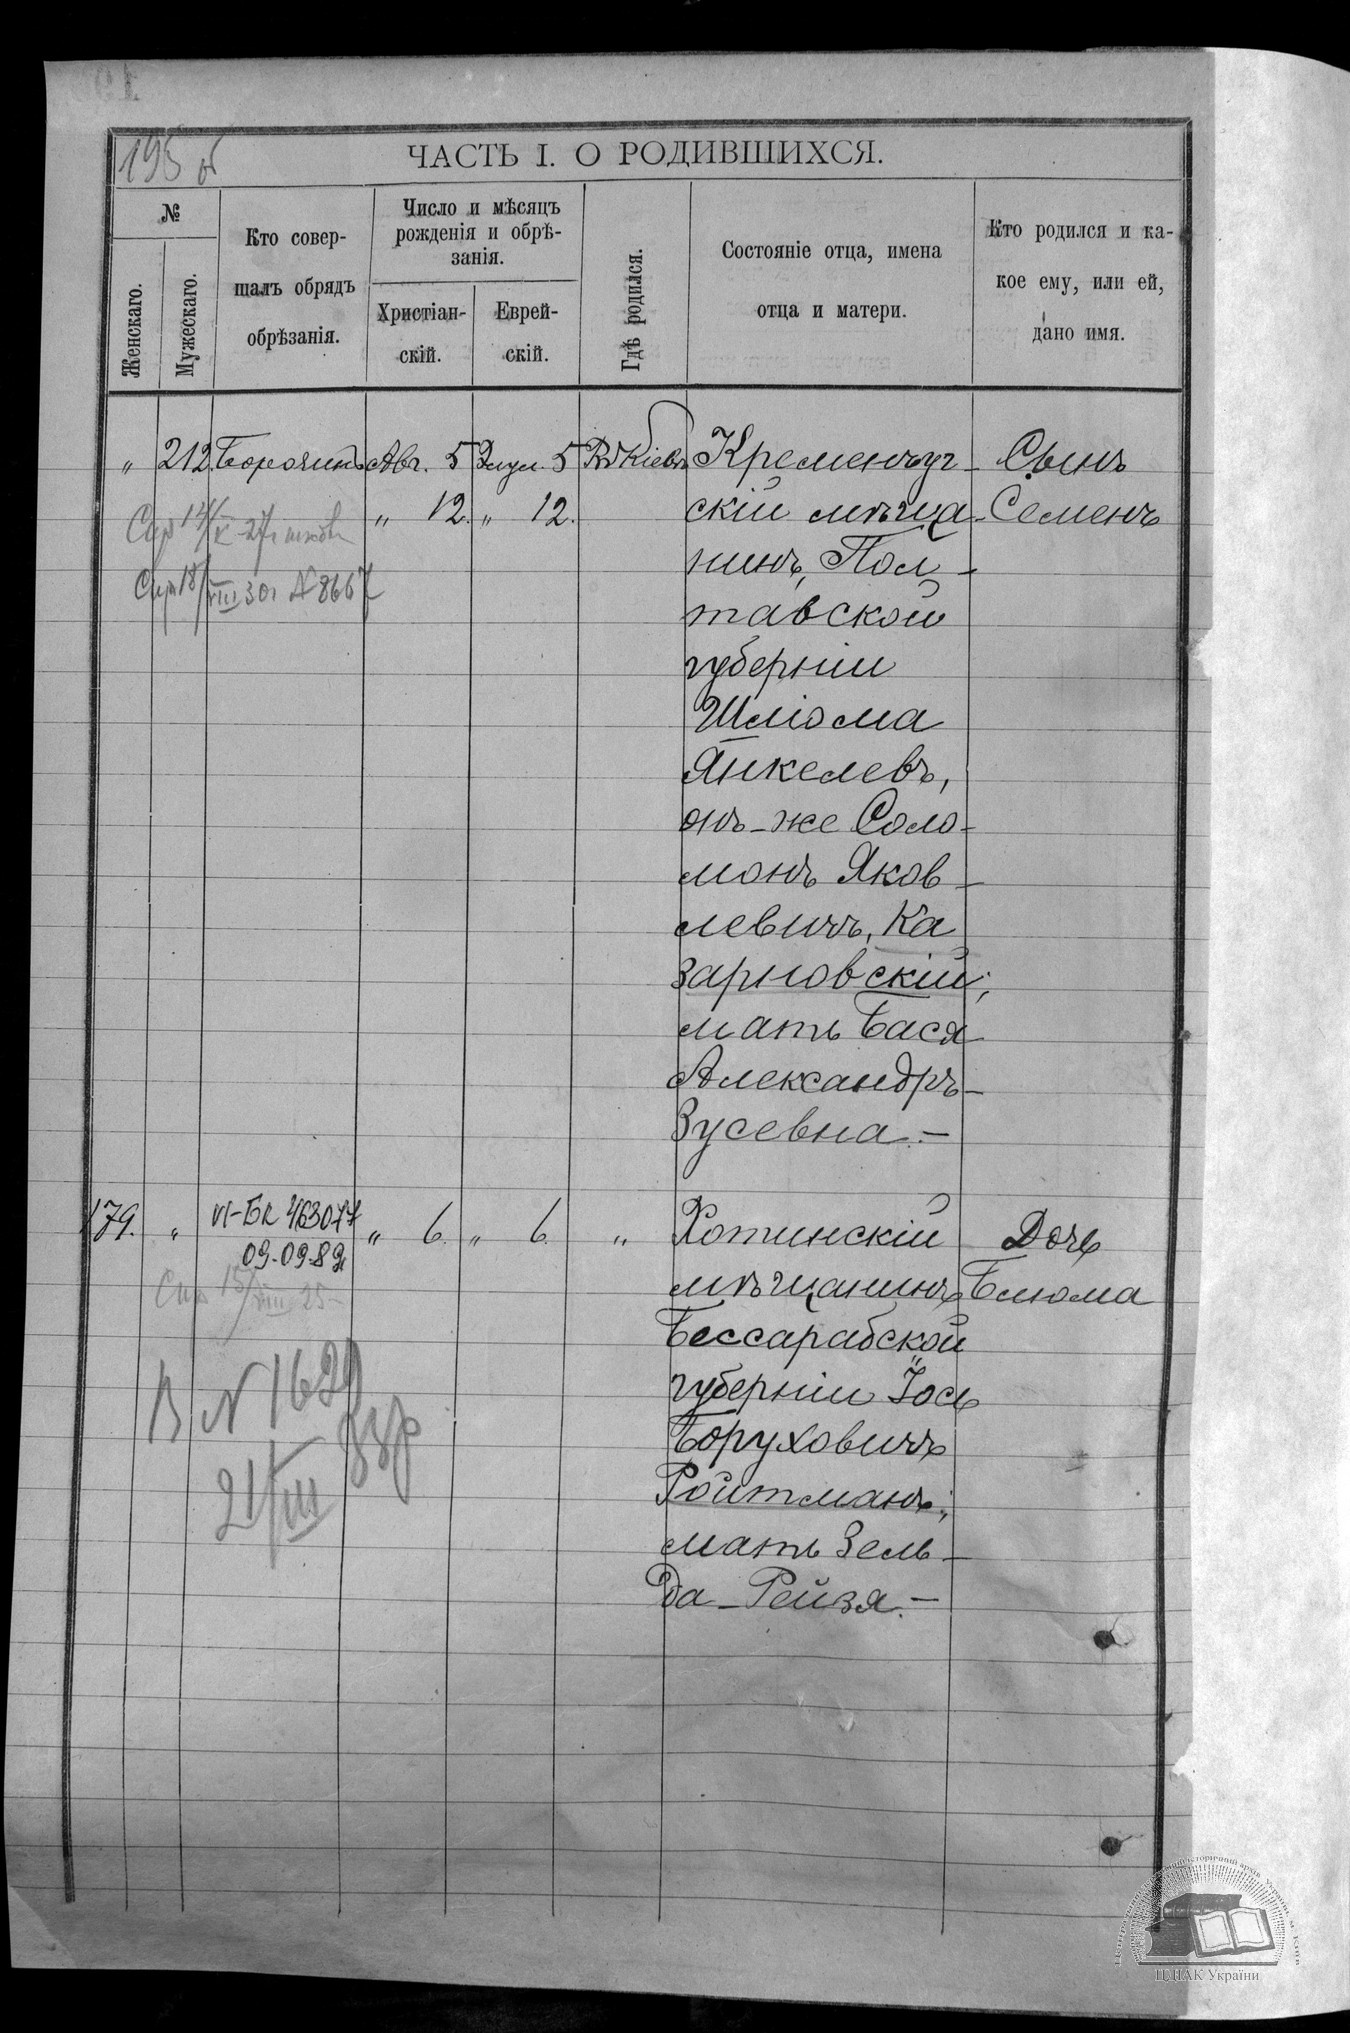 195 об
ЧАСТЬ I. О РОДИВШИХСЯ.
№
Женскаго.
Мужескаго.
Кто совер-
шалъ обрядъ
обрѣзанія.
Число и мѣсяцъ
рожденія и обрѣ-
занія.
Христіан-
скій.
Еврей-
скій.
Гдѣ родился.
Состояніе отца, имена
отца и матери.
Кто родился и ка-
кое ему, или ей,
дано имя.
„ 212 Авг. 5 Элул. 5 Въ Кіевѣ Кременчуг- Сынъ
„ 12. „ 12. скій мѣща- Семенъ
нинъ, Пол-
тавской
губерніи
Шліома
Янкелевъ,
онъ-же Соло-
монъ Яков-
левичъ, Ка
зарновскій;
мать Бася
Александръ-
Зусевна.-
18/VIII 30г №8667
179. „ VI-БК 463077 „ 6. „ 6. „ Хотинскій Дочь
09.09.89
мѣщанинъ Блюма
Бессарабской
губерніи Іось
Боруховичъ
Ройтманъ;
мать Зель-
да-Рейзя.-
15/VIII 25
В №1629
21/III 33г
ЦДІАК України